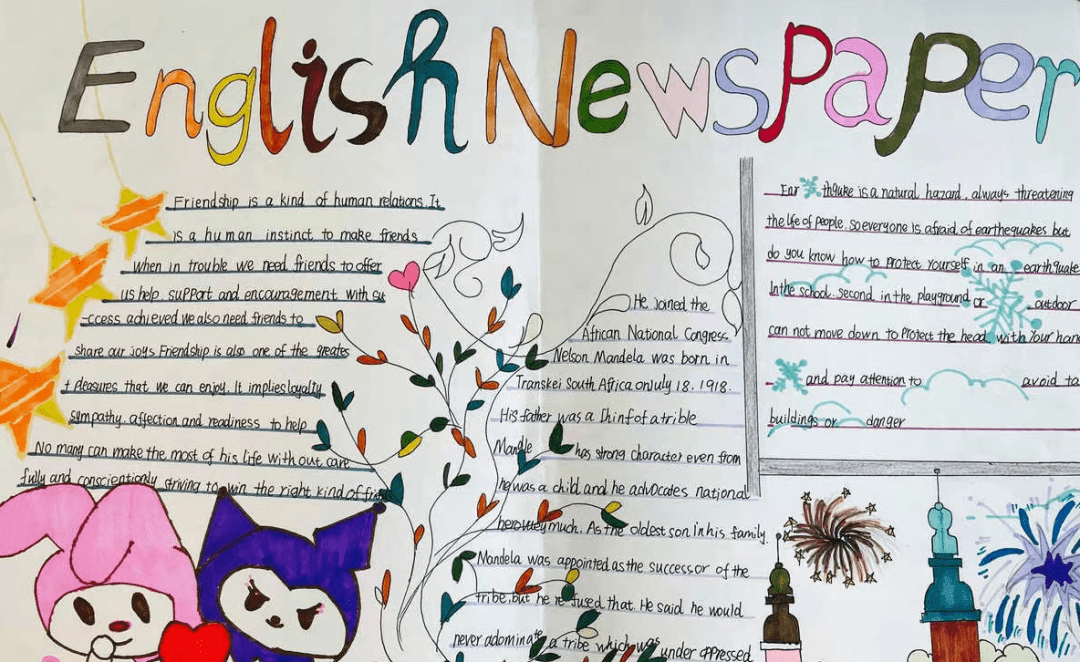 English Newspaper
Friendship is a kind of human relations. It
is a human instinct to make friends
when in trouble we need friends to offer
us help. support and encouragement with su
-ccess achieved we also need friends to
share our joys Friendship is also one of the greates
t deasures that we can enjoy. It implies loyalty
sympathy affection and readiness to help
No many can make the most of his life without care
fully and conscientionly striving to win the right kind of frie
He joined the
African National Congress.
Nelson Mandela was born in
Transkei South Africa on July 18. 1918.
His father was a Dhinf of a trible
Mandle has strong character even from
he was a child. and he advocates national
much. As the oldest son in his family.
Mandela was appointed as the successor of the
tribe, but he refused that. He said he would
never adominate a tribe which was under oppressed
Ear thquke is a natural hazard. always threatening
the life of people. so everyone is afraid of earthequakes but
do you know how to protect yourself in an earthquake
In the school. second in the playground or outdoor
can not move down to protect the head with your han
and pay attention to avoid ta
buildings or danger